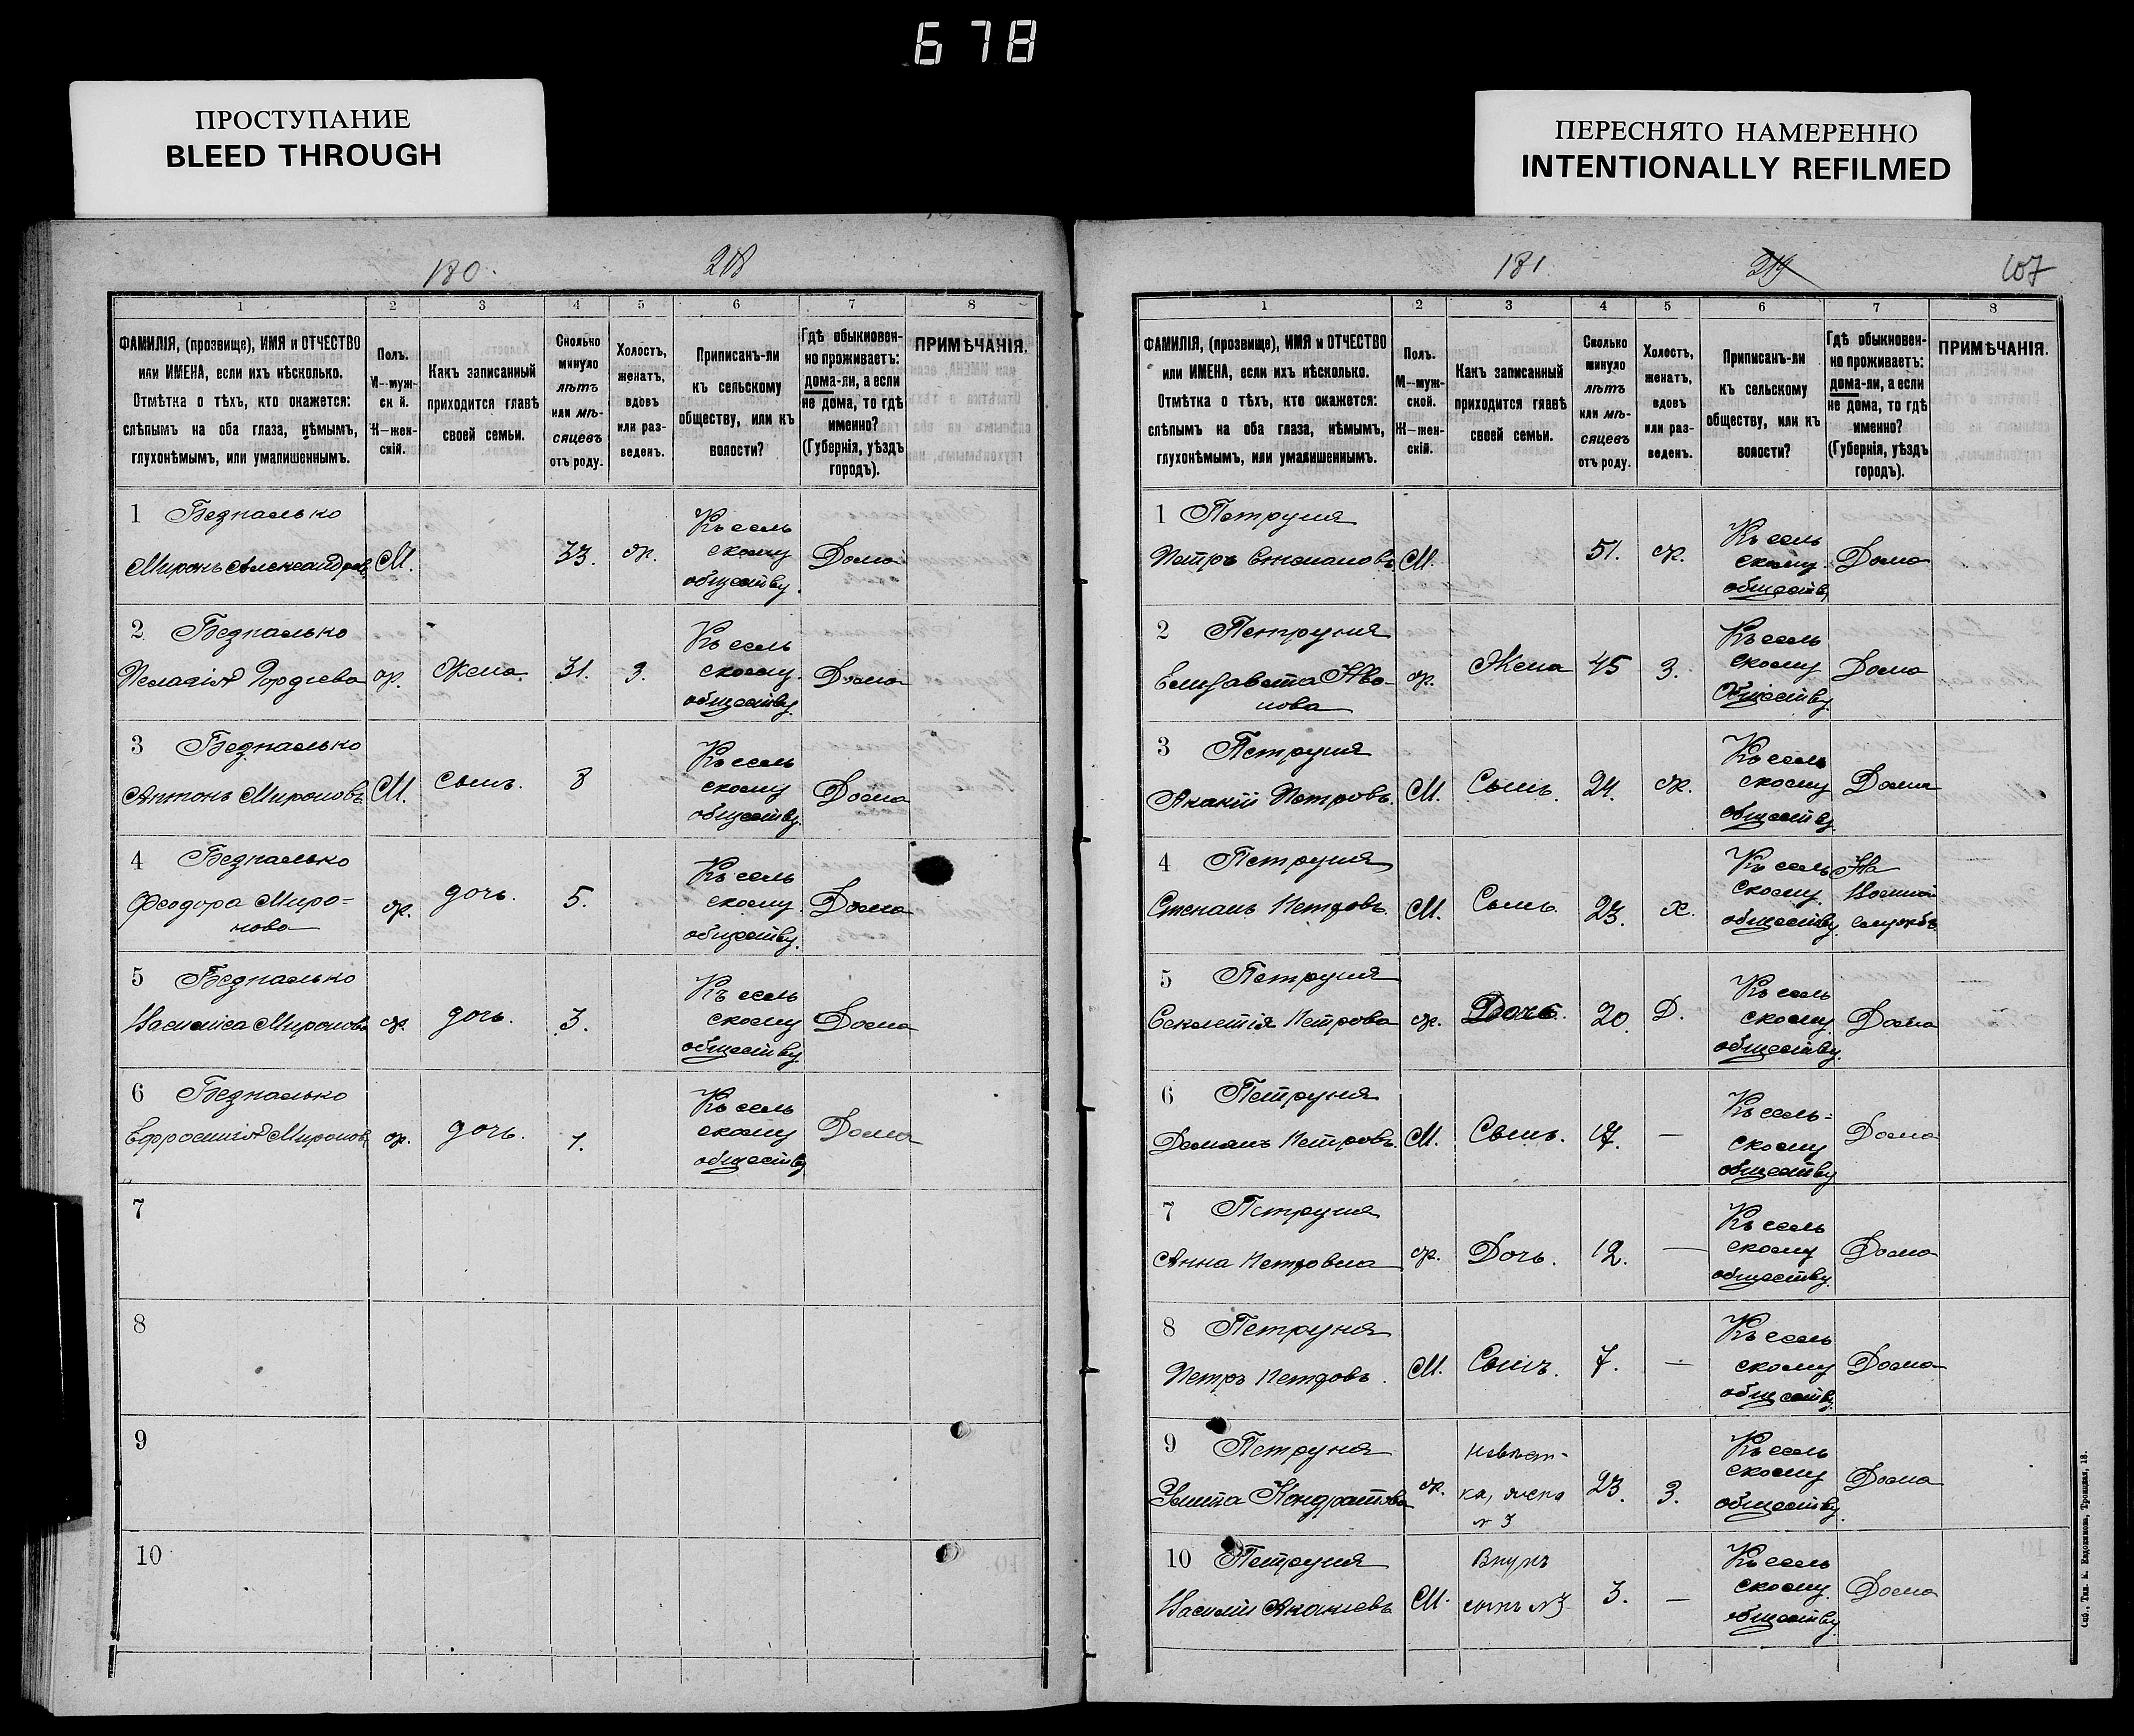 678
ПРОСТУПАНИЕ
BLEED THROUGH
ПЕРЕСНЯТО НАМЕРЕННО
INTENTIONALLY REFILMED
180.
218
1 2 3 4 5 6 7 8
ФАМИЛІЯ, (прозвище), ИМЯ и ОТЧЕСТВО
или ИМЕНА, если ихъ нѣсколько.
Отмѣтка о тѣхъ, кто окажется:
слѣпымъ на оба глаза, нѣмымъ,
глухонѣмымъ, или умалишеннымъ.
Полъ.
М—муж-
ск й.
Ж—жен-
скій.
Какъ записанный
приходится главѣ
своей семьи.
Сколько
минуло
лѣтъ
или мѣ-
сяцевъ
отъ роду.
Холостъ,
женатъ,
вдовъ
или раз-
веденъ.
Приписанъ-ли
къ сельскому
обществу, или къ
волости?
Гдѣ обыкновен-
но проживаетъ:
дома-ли, а если
не дома, то гдѣ
именно?
(Губернія, уѣздъ
городъ).
ПРИМѢЧАНІЯ.
1 Безпалько
Миронъ Александровъ М. 33. ж. Къ сель
скому
обществу. Дома
2 Безпалько
Пелагія Гордѣева ж. Жена. 31. З. Къ сель
скому.
обществу. Дома
3 Безпалько
Антонъ Мироновъ М. сынъ. 8 Къ сель
скому
обществу. Дома
4 Безпалько
Феодора Миро-
нова ж. дочь. 5. Къ сель
скому.
обществу. Дома
5 Безпалько
Василиса Миронова ж. дочь. 3. Къ сель
скому
обществу. Дома
6 Безпалько
Ефросинія Миронов. ж. дочь. 1. Къ сель
скому
обществу Дома
7
8
9
10
181
219
107
1 2 3 4 5 6 7 8
ФАМИЛІЯ, (прозвище), ИМЯ и ОТЧЕСТВО
или ИМЕНА, если ихъ нѣсколько.
Отмѣтка о тѣхъ, кто окажется:
слѣпымъ на оба глаза, нѣмымъ,
глухонѣмымъ, или умалишеннымъ.
Полъ.
М—муж-
ской.
Ж—жен-
скій.
Какъ записанный
приходится главѣ
своей семьи.
Сколько
минуло
лѣтъ
или мѣ-
сяцевъ
отъ роду.
Холостъ,
женатъ,
вдовъ
или раз-
веденъ.
Приписанъ-ли
къ сельскому
обществу, или къ
волости?
Гдѣ обыкновен-
но проживаетъ:
дома-ли, а если
не дома, то гдѣ
именно?
(Губернія, уѣздъ
городъ).
ПРИМѢЧАНІЯ.
1 Петруня
Петръ Степановъ М. 51. ж. Къ сель
скому.
обществ. Дома
2 Петруня
Елизавета Ива-
нова ж. Жена 45 З. Къ сель
скому
Обществу. Дома
3 Петруня
Акакій Петровъ. М. Сынъ. 24. ж. Къ сель
скому
обществу. Дома
4 Петруня
Степанъ Петровъ. М. Сынъ. 23. х. Къ сель
скому.
обществу. На
Военной
службѣ
5 Петруня
Петрова ж. Дочь. 20. Д. Къ сель
скому.
обществу. Дома
6 Петруня
Доманъ Петровъ. М. Сынъ. 17. — Къ сель-
скому
обществу Дома
7 Петруня
Анна Петровна ж. Дочь. 12. — Къ сель
скому
обществу. Дома
8 Петруня
Петръ Петровъ. М. Сынъ. 7. — Къ сель
скому
обществу. Дома
9 Петруня
Кондратова ж. невѣст-
ка, жена
№ 3 23. З. Къ сель
скому
обществу. Дома
10 Петруня
Василій Акакіевъ М. Внукъ
сынъ №3 3. — Къ сель
скому.
обществу Дома
Спб., Тип. Е. Евдокимова, Троицкая, 18.